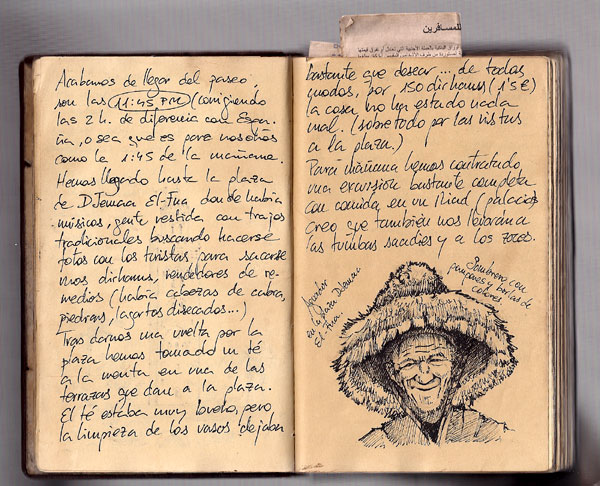 Acabamos de llegar del paseo,
son las 11:45 PM (corrigiendo
las 2 h. de diferencia con Espa-
ña, o sea que es para nosotros
como la 1:45 de la mañana.
Hemos llegado hasta la plaza
de DJemaa El-Fna donde había
músicos, gente vestida con trajes
tradicionales buscando hacerse
fotos con los turistas para sacarse
unos dirhams, vendedores de re-
medios (había cabezas de cabra,
piedras, lagartos disecados...)
Tras darnos una vuelta por la
plaza hemos tomado un té
a la menta en una de las
terrazas que dan a la plaza.
El té estaba muy bueno, pero
la limpieza de los vasos dejaba
للمسافرين
bastante que desear ... de todos
modos, por 150 dirhams (1'5 €)
la cosa no ha estado nada
mal. (sobre todo por las vistas
a la plaza.)
Para mañana hemos contratado
una excursión bastante completa
con comida en un Riad (palacio)
creo que también nos llevarán a
las tumbas saadies y a los zocos.
Aguador
en la plaza DJemaa
El-Fna.
Sombrero con
pompones y borlas de
colores